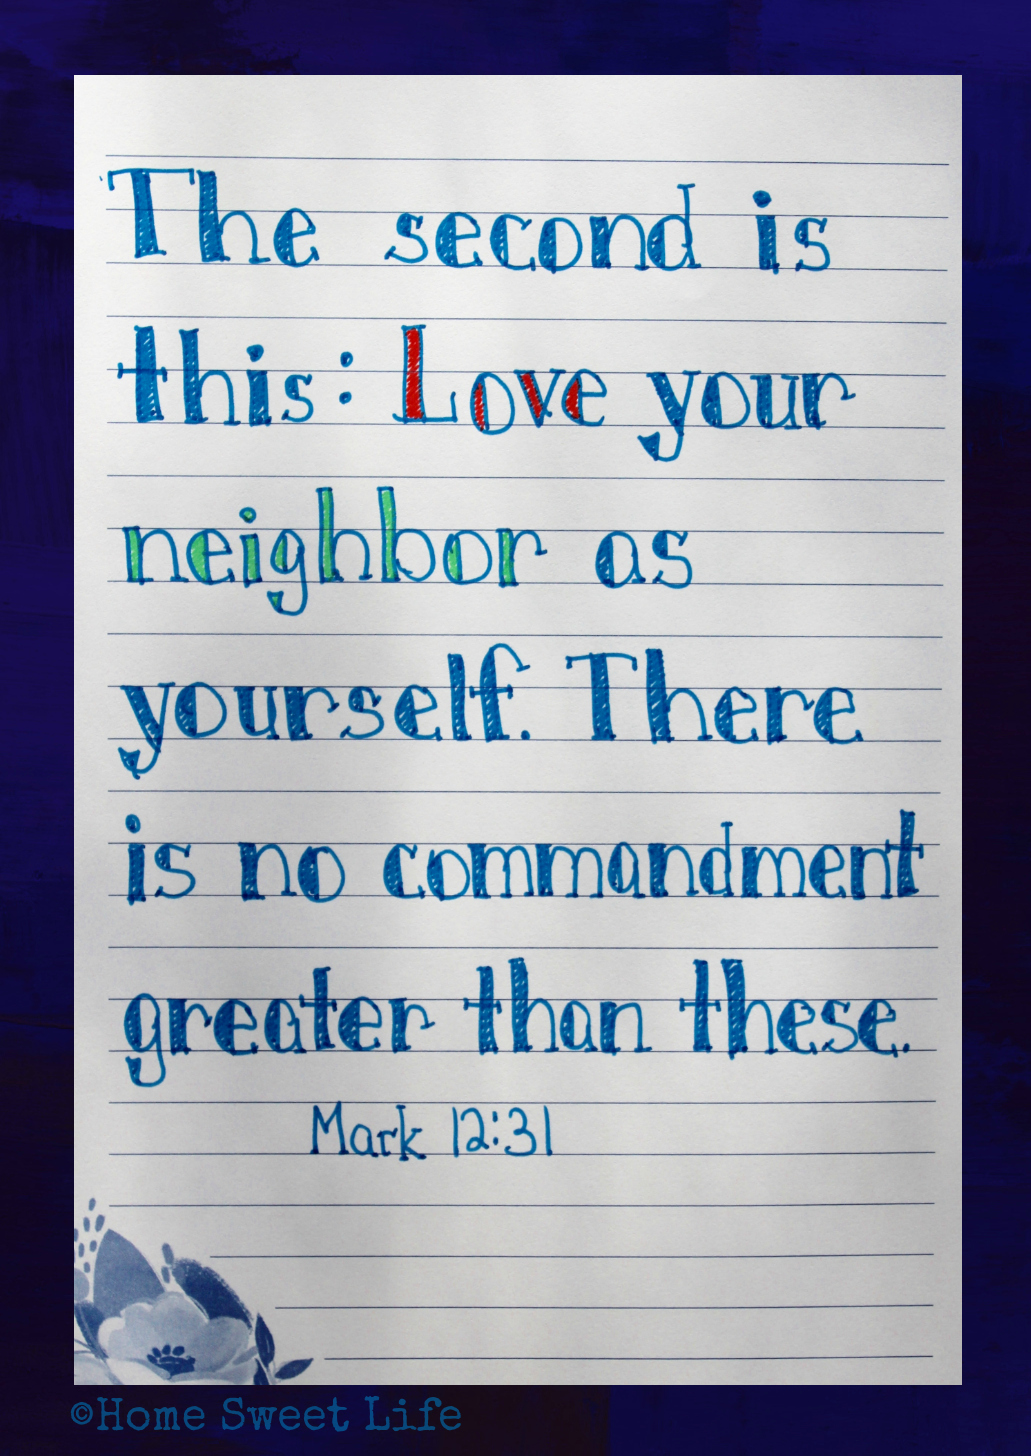 The second is
this: Love your
neighbor as
yourself. There
is no commandment
greater than these.
Mark 12:31
©Home Sweet Life